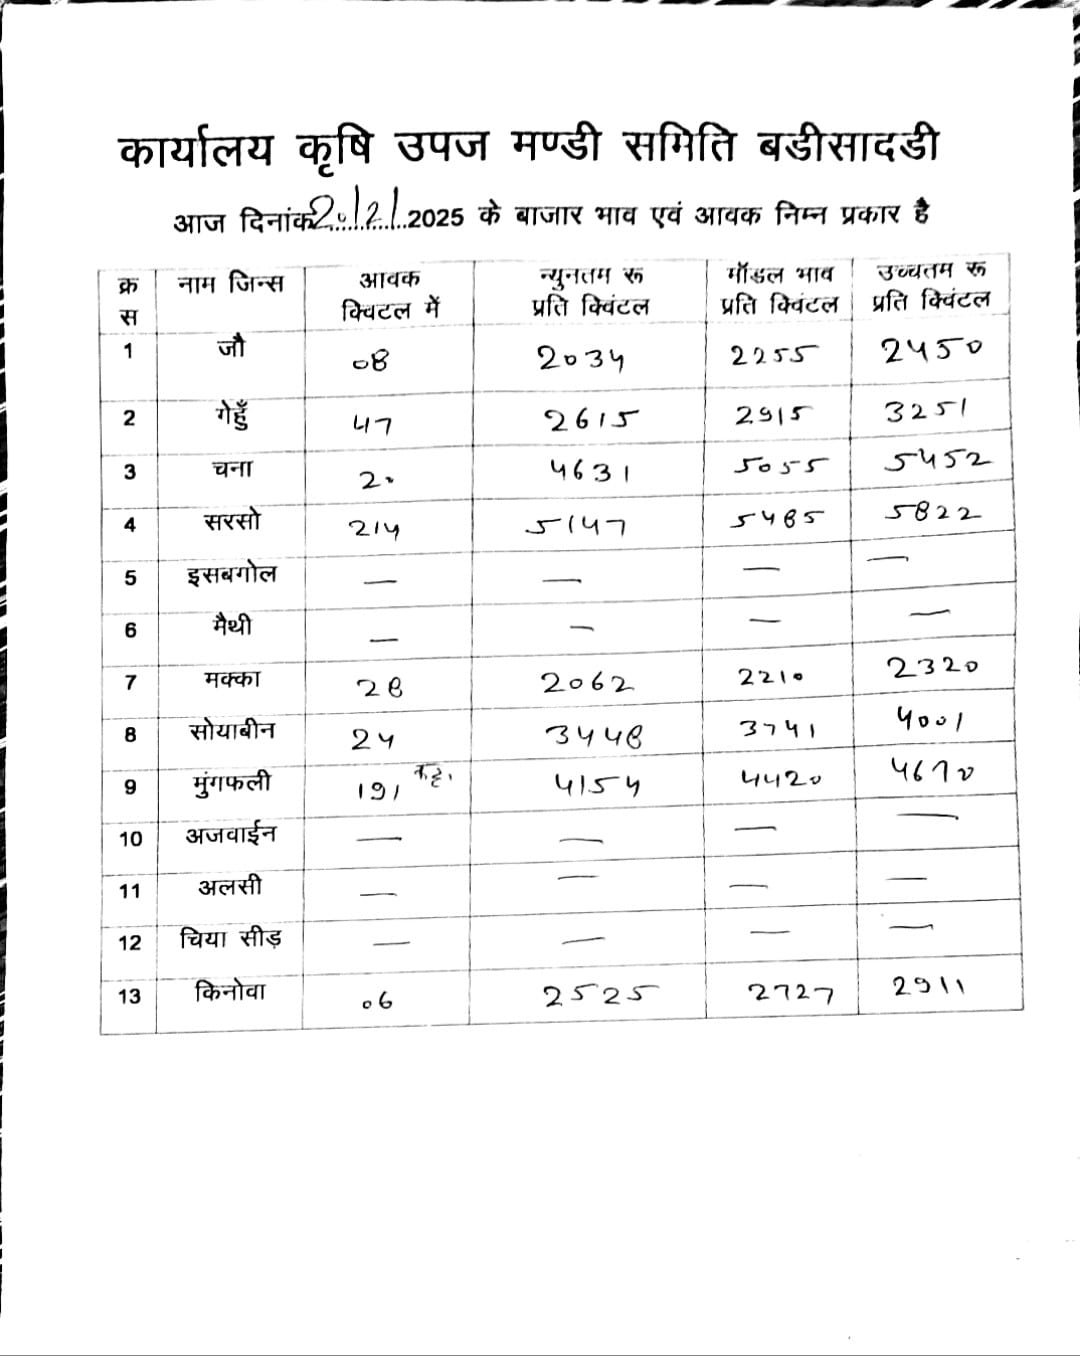 कार्यालय कृषि उपज मण्डी समिति बडीसादडी
आज दिनांक 20/2/2025 के बाजार भाव एवं आवक निम्न प्रकार है
क्र स नाम जिन्स आवक क्विटल में न्युनतम रू प्रति क्विंटल मॉडल भाव प्रति क्विंटल उच्चतम रू प्रति क्विंटल
1 जौ 08 2034 2255 2450
2 गेहुँ 47 2615 2915 3251
3 चना 20 4631 5055 5452
4 सरसो 214 5147 5485 5822
5 इसबगोल — — — —
6 मैथी — — — —
7 मक्का 28 2062 2210 2320
8 सोयाबीन 24 3448 3741 4001
9 मुंगफली 191 4154 4420 4670
10 अजवाईन — — — —
11 अलसी — — — —
12 चिया सीड़ — — — —
13 किनोवा 06 2525 2727 2911